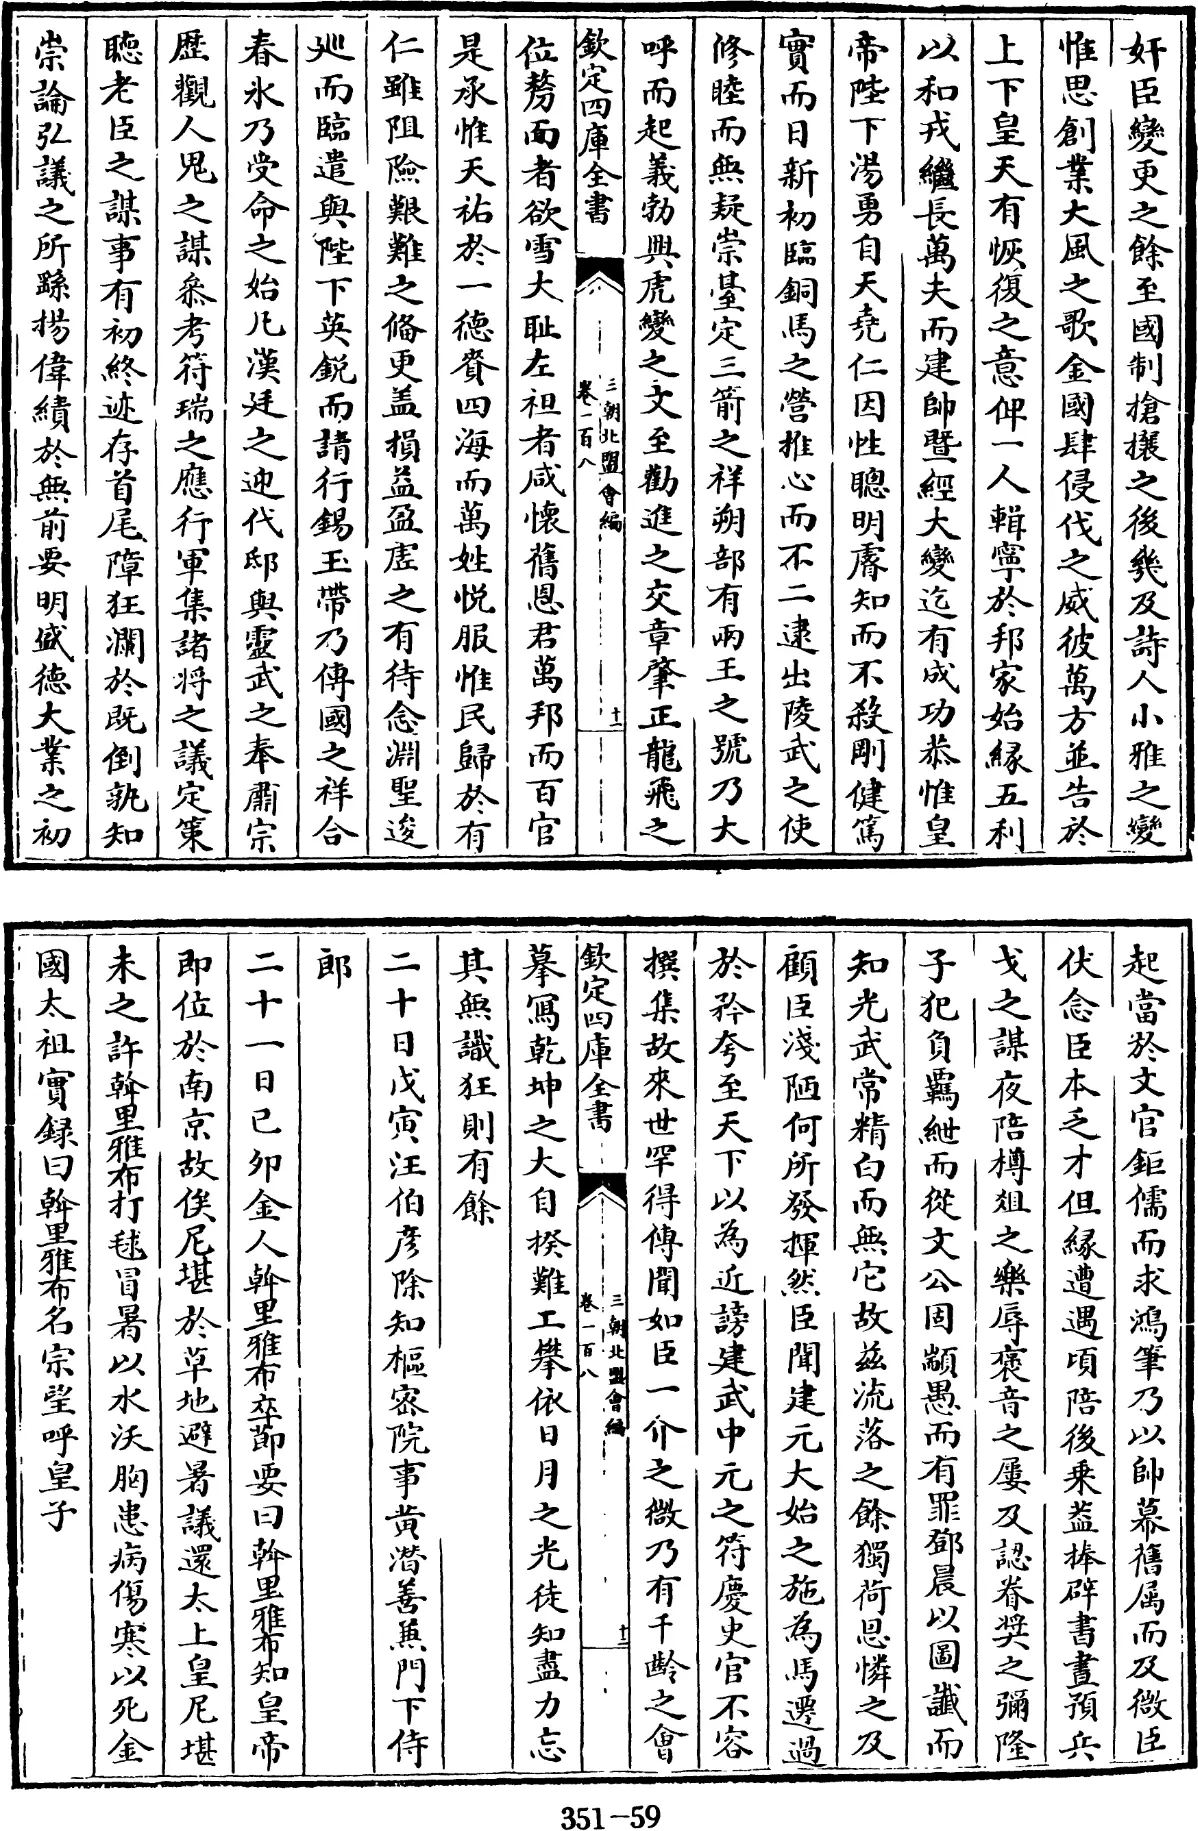 奸臣變更之餘至國制搶攘之後幾及詩人小雅之變
惟思創業大風之歌金國肆侵伐之威彼萬方並告於
上下皇天有恢復之意俾一人輯寧於邦家始縁五利
以和戎繼長萬夫而建帥暨經大變迄有成功恭惟皇
帝陛下湯勇自天堯仁因性聰明睿知而不殺剛健篤
實而日新初臨銅馬之營推心而不二逮出陵武之使
修睦而無疑崇臺定三箭之祥朔部有兩王之號乃大
呼而起義勃興虎變之文至勸進之交章肇正龍飛之
欽定四庫全書
三朝北盟會編
卷一百八
十一
位剺面者欲雪大恥左袒者咸懷舊恩君萬邦而百官
是承惟天祐於一德賚四海而萬姓悦服惟民歸於有
仁雖阻險艱難之備更盖損益盈虗之有待念淵聖逡
廵而臨遣與陛下英鋭而請行錫玉帶乃傳國之祥合
春氷乃受命之始凡漢廷之迎代邸與靈武之奉肅宗
歷觀人鬼之謀叅考符瑞之應行軍集諸将之議定策
聽老臣之謀事有初終迹存首尾障狂瀾於既倒孰知
崇論弘議之所繇揚偉績於無前要明盛德大業之初
起當於文官鉅儒而求鴻筆乃以帥幕舊属而及微臣
伏念臣本乏才但縁遭遇頃陪後乗葢捧辟書晝預兵
戈之謀夜陪樽俎之樂辱褒音之屢及認眷奨之彌隆
子犯負羈紲而從文公固顓愚而有罪鄧晨以圖讖而
知光武常精白而無它故兹流落之餘獨荷恩憐之及
顧臣淺陋何所發揮然臣聞建元大始之施為馬遷過
於矜夸至天下以為近謗建武中元之符慶史官不容
撰集故來世罕得傳聞如臣一介之微乃有千齡之會
欽定四庫全書
三朝北盟會編
卷一百八
十二
摹寫乾坤之大自揆難工攀依日月之光徒知盡力忘
其無識狂則有餘
二十日戊寅汪伯彦除知樞密院事黄潛善兼門下侍
郎
二十一日己卯金人斡里雅布卒節要曰斡里雅布知皇帝
即位於南京故俟尼堪於草地避暑議還太上皇尼堪
未之許斡里雅布打毬冒暑以水沃胸患病傷寒以死金
國太祖實録曰斡里雅布名宗望呼皇子
351-59